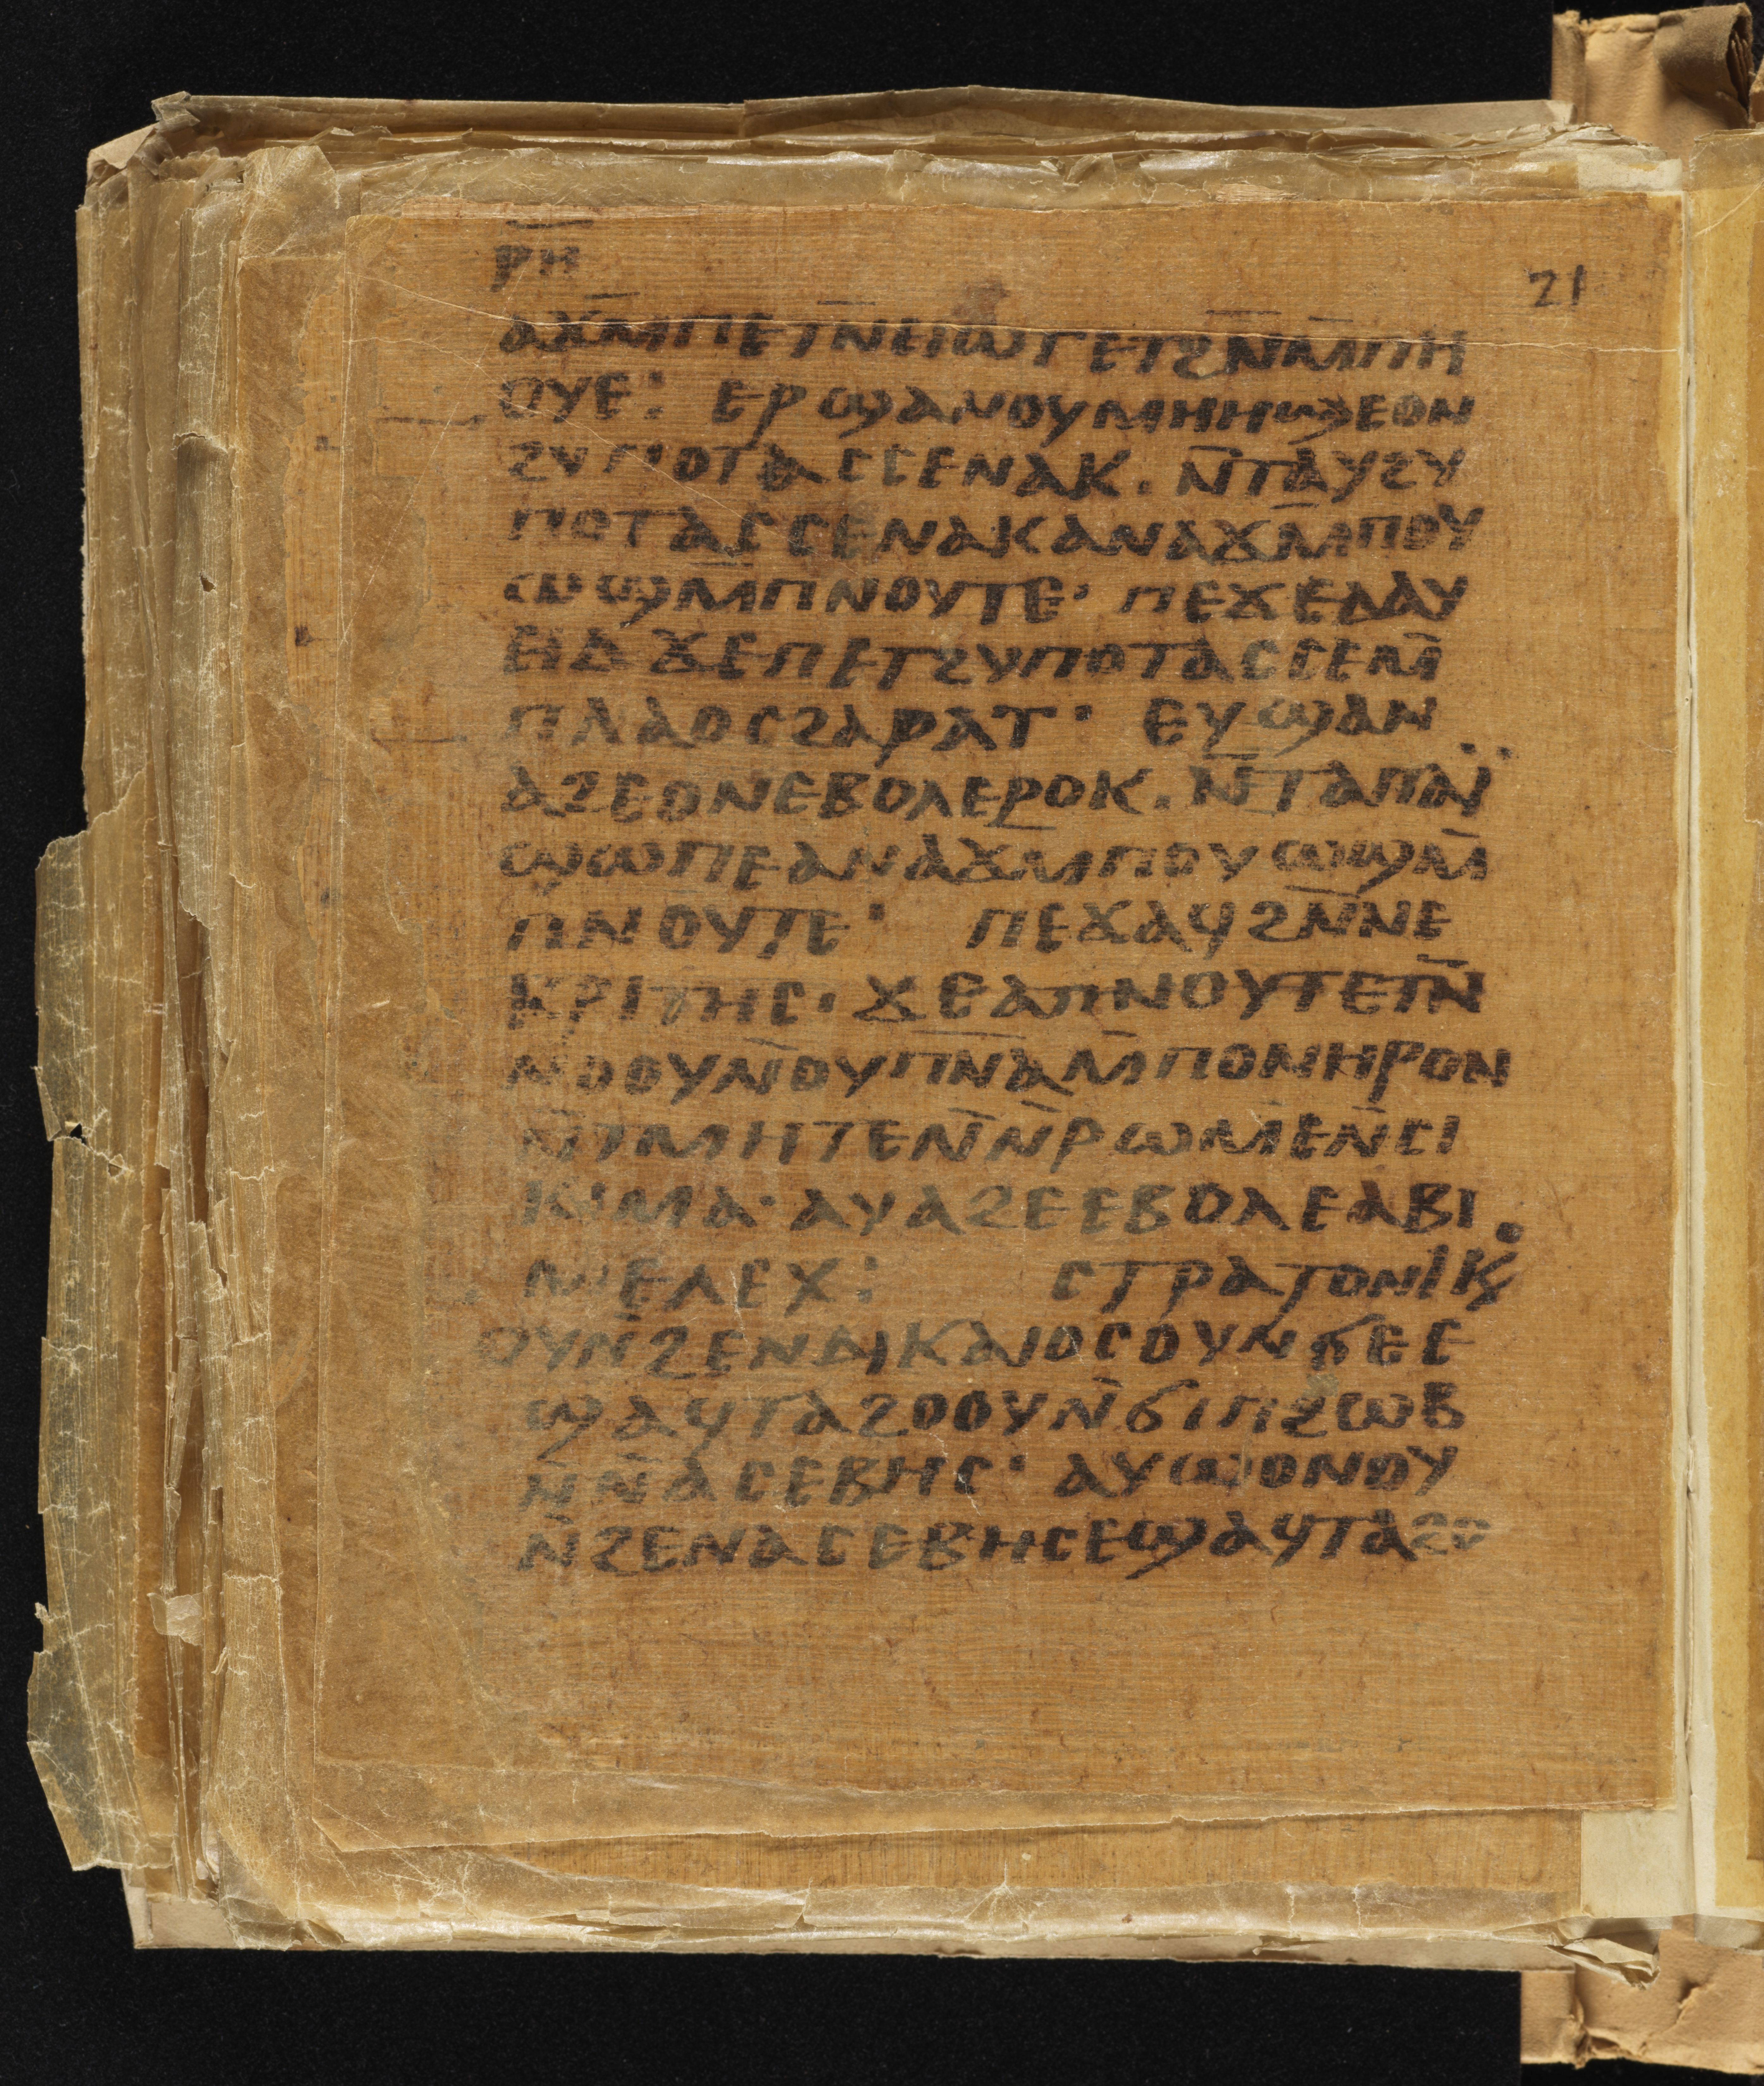 ⲣⲏ
21
ⲁϫⲙ̄ⲡⲉⲧⲛ̄ⲉⲓⲱⲧⲉⲧϩⲛ̄ⲙ̄ⲡⲏ
ⲟⲩⲉ: ⲉⲣϣⲁⲛⲟⲩⲙⲏⲏϣⲉⲟⲛ
ϩⲩⲡⲟⲧⲁⲥⲥⲉⲛⲁⲕ. ⲛ̄ⲧⲁⲩϩⲩ
ⲡⲟⲧⲁⲥⲥⲉⲛⲁⲕⲁⲛⲁϫⲙ̄ⲡⲟⲩ
ⲱϣⲙ̄ⲡⲛⲟⲩⲧⲉ· ⲡⲉϫⲉⲇⲁⲩ
ⲉⲓⲇ ϫⲉⲡⲉⲧϩⲩⲡⲟⲧⲁⲥⲥⲉⲙ̄
ⲡⲗⲁⲟⲥϩⲁⲣⲁⲧ· ⲉⲩϣⲁⲛ
ⲁϩⲉⲟⲛⲉⲃⲟⲗⲉⲣⲟⲕ. ⲛ̄ⲧⲁⲡⲁⲓ̈
ϣⲱⲡⲉⲁⲛⲁϫⲙ̄ⲡⲟⲩⲱϣⲙ̄
ⲡⲛⲟⲩⲧⲉ· ⲡⲉϫⲁϥϩⲛ̄ⲛⲉ
ⲕⲣⲓⲧⲏⲥ· ϫⲉⲁⲡⲛⲟⲩⲧⲉⲧⲛ̄
ⲛⲟⲟⲩⲛ̄ⲟⲩⲡ̄ⲛ̄ⲁ̄ⲙ̄ⲡⲟⲛⲏⲣⲟⲛ
ⲛ̄ⲧⲙⲏⲧⲉⲛ̄ⲛ̄ⲣⲱⲙⲉⲛ̄ⲥⲓ
ⲕⲓⲙⲁ· ⲁⲩⲁϩⲉⲉⲃⲟⲗⲉⲁⲃⲓ
ⲙⲉⲗⲉⲭ: ⲥⲧⲣⲁⲧⲟⲛⲓⲕ
ⲟⲩⲛ̄ϩⲉⲛⲇⲓⲕⲁⲓⲟⲥⲟⲩⲛϭⲉⲉ
ϣⲁϥⲧⲁϩⲟⲟⲩⲛ̄ϭⲓⲡϩⲱⲃ
ⲛ̄ⲛ̄ⲁⲥⲉⲃⲏⲥ· ⲁⲩⲱⲟⲛⲟⲩ
ⲛ̄ϩⲉⲛⲁⲥⲉⲃⲏⲥⲉϣⲁϥⲧⲁϩⲟ